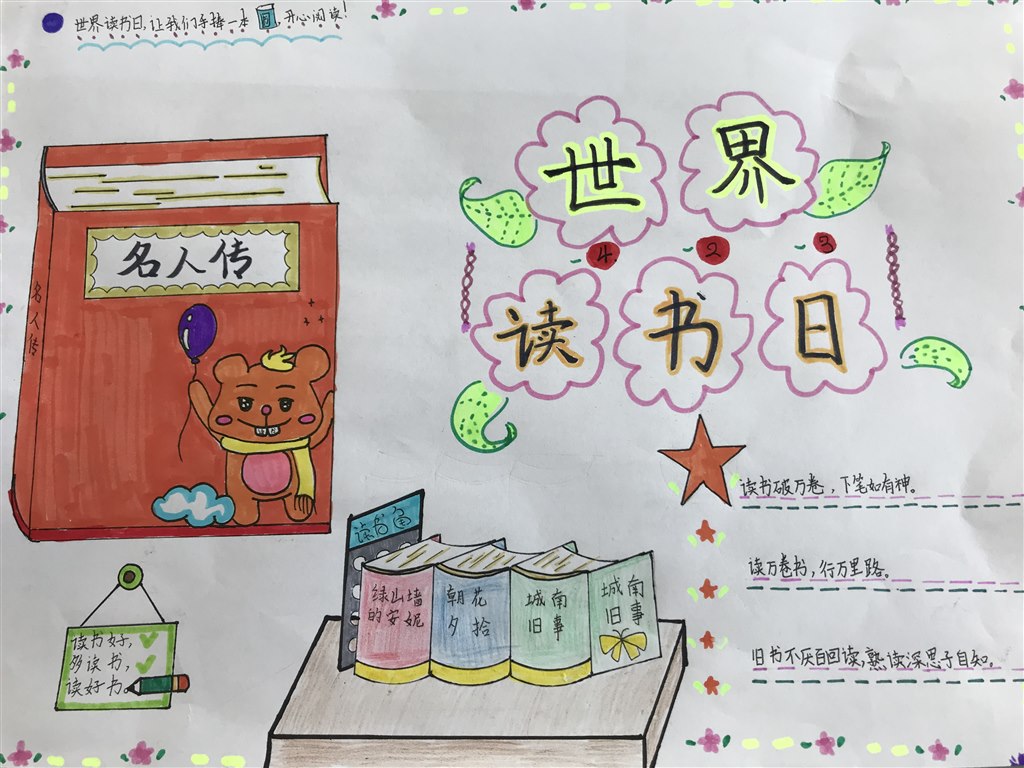 世界读书日,让我们手捧一本书,开心阅读!
世界
4 2 3
读书日
名人传
名人传
读书破万卷,下笔如有神。
读万卷书,行万里路。
旧书不厌百回读,熟读深思子自知。
读书角
绿山墙
的安妮
朝花
夕拾
城南
旧事
城南
旧事
读书好,
多读书,
读好书。